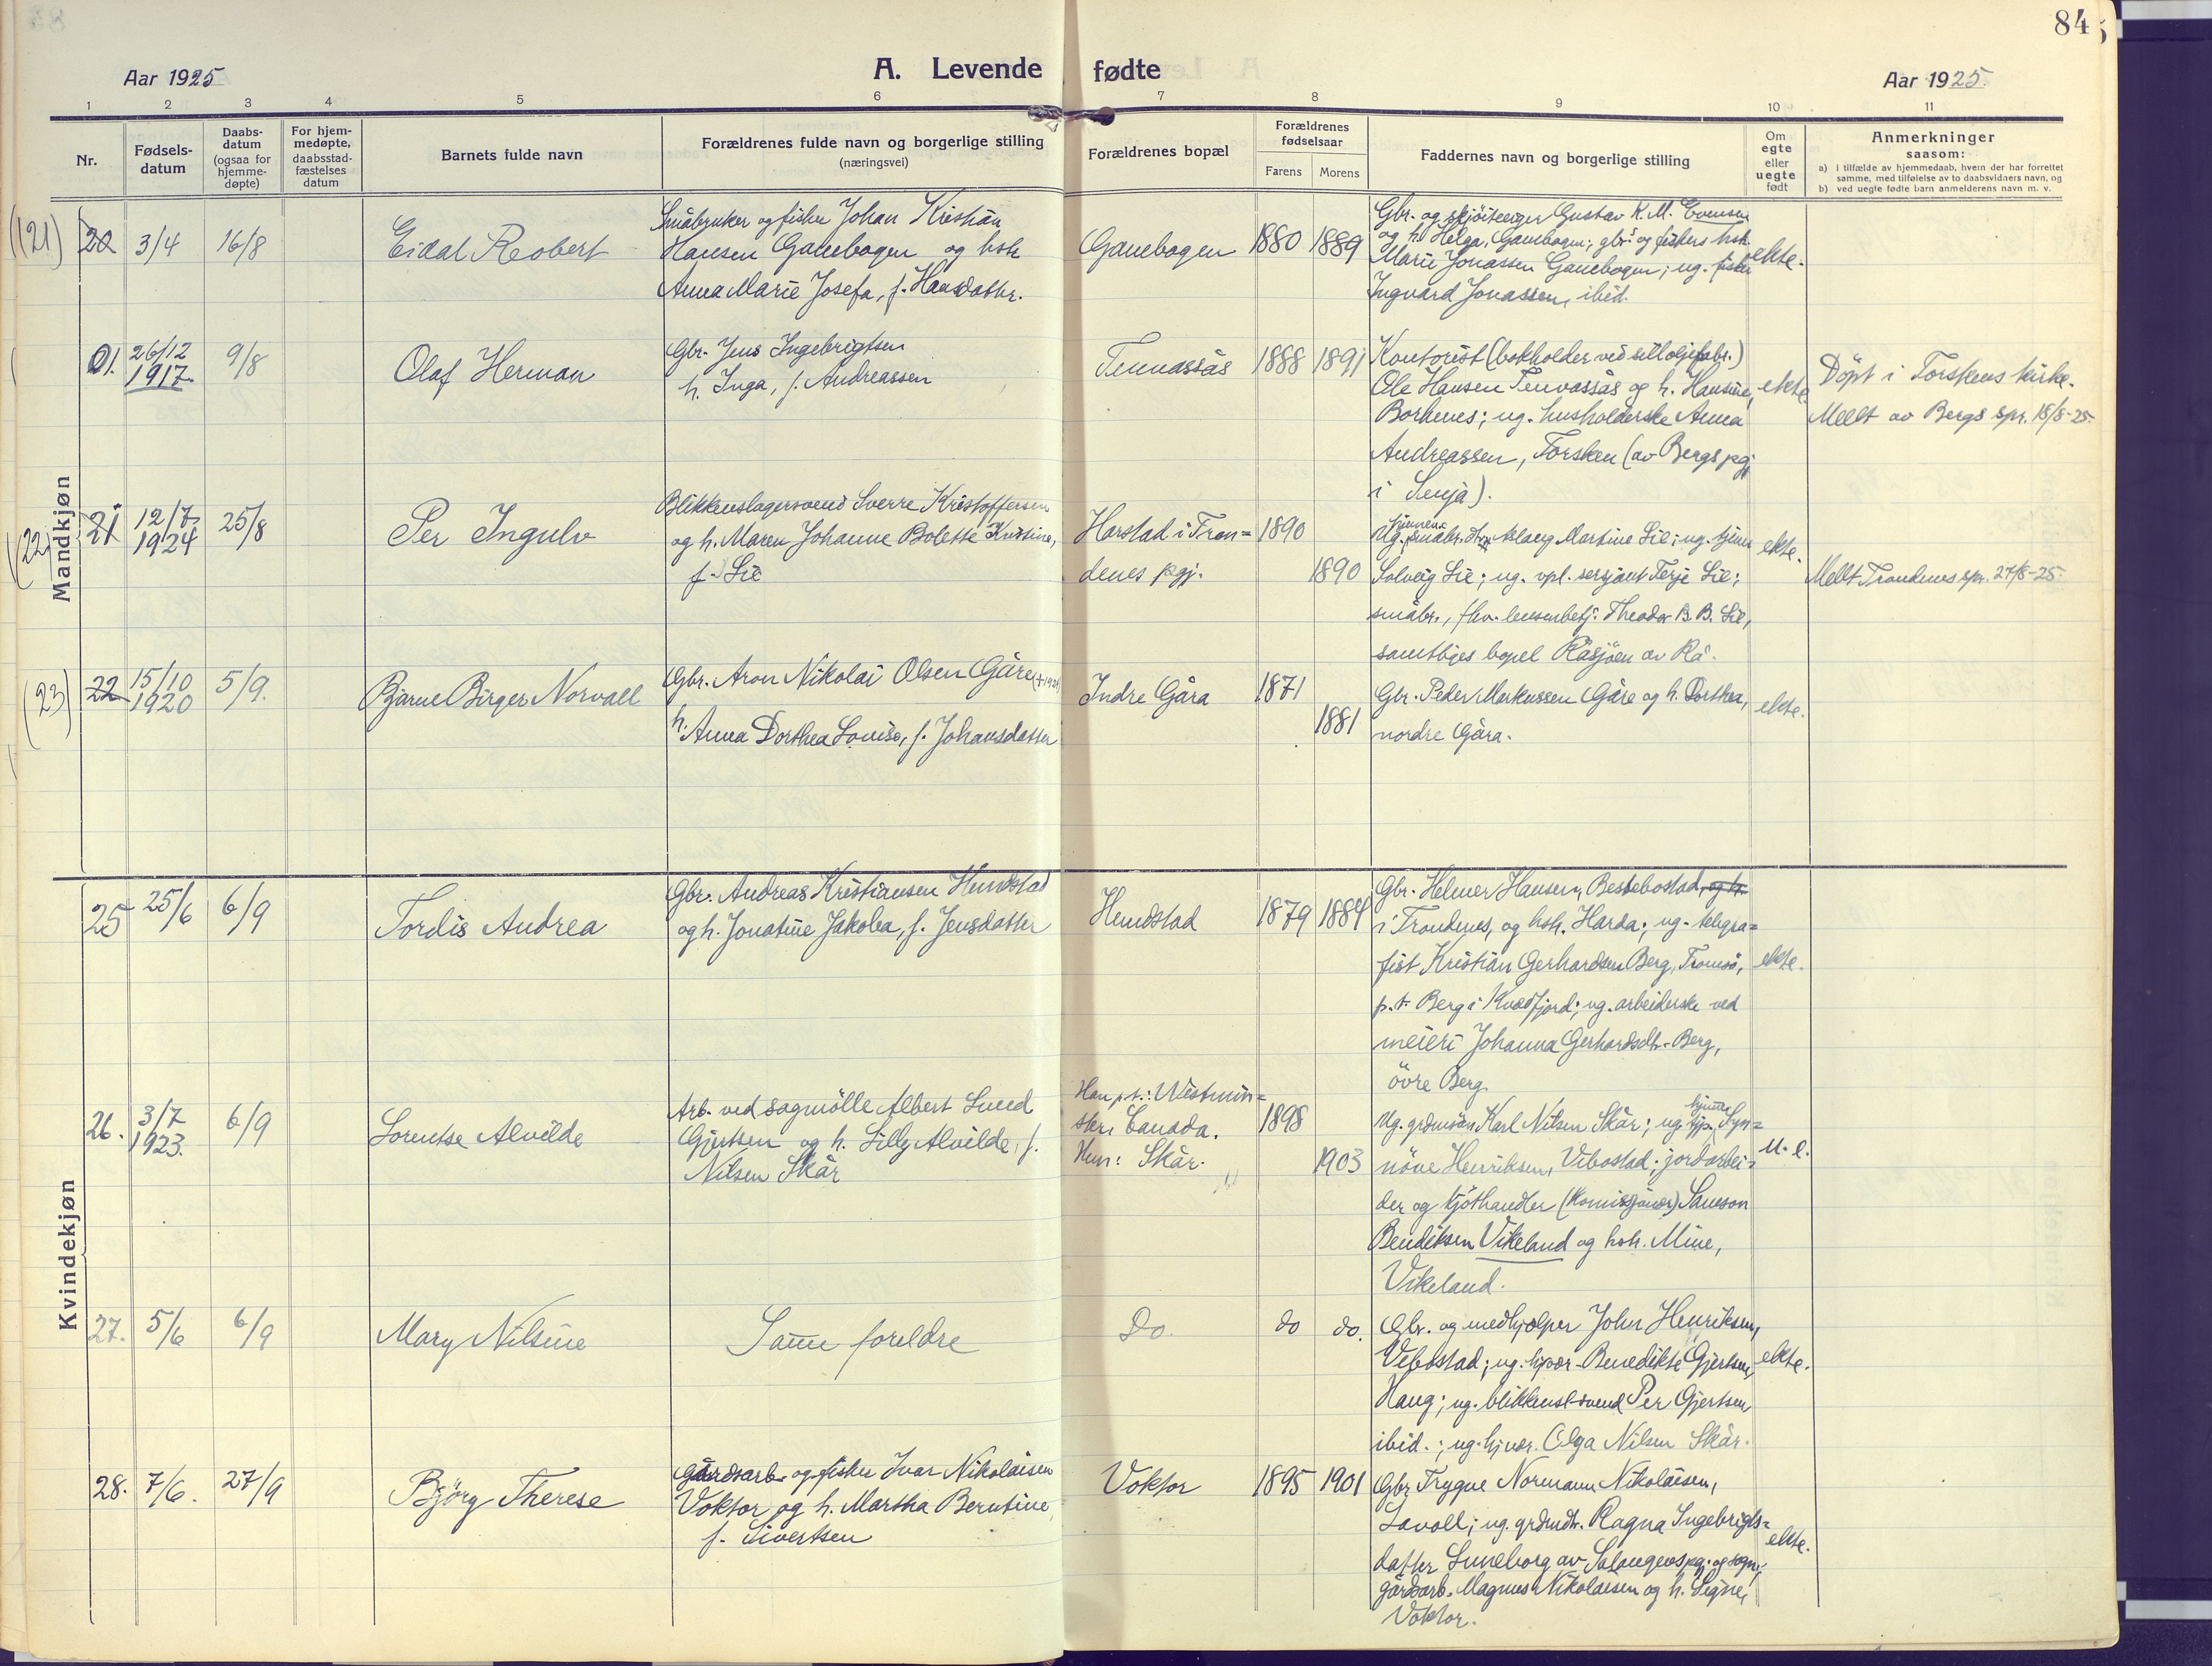 84
Aar 1925
A. Levende fødte
Aar 1925.
1 2 3 4 5 6 7 8 9 10 11
Nr.
Fødsels-
datum
Daabs-
datum
(ogsaa for
hjemme-
døpte)
For hjem-
medøpte,
daabsstad-
fæstelses
datum
Barnets fulde navn
Forældrenes fulde navn og borgerlige stilling
(næringsvei)
Forældrenes bopæl
Forældrenes
fødselsaar
Farens Morens
Faddernes navn og borgerlige stilling
Om
egte
eller
uegte
født
Anmerkninger
saasom:
a) i tilfælde av hjemmedaab, hvem der har forrettet
samme, med tilføielse av to daabsvidners navn, og
b) ved uegte fødte barn anmelderens navn m. v.
Mandkjøn
(21) 20 3/4 16/8
Eidal Reobert
Småbruker og fisker Johan Kristian
Hansen Gauebogen og hstr
Anna Marie Josefa, f. Hansdatter.
Gauebogen
1880 1889
Gbr. og skjöiteeiger Gustav K. M. Evensen
og h. Helga, Gauebogen; gbr.s og fiskers hstr.
Marie Jonassen Gauebogen; ug. fisker
Ingvard Jonassen, ibid.
ekte.
01. 26/12 1917. 9/8
Olaf Herman
Gbr. Jens Ingebrigtsen
h. Inga, f. Andreassen
Tennassås
1888 1891
Kontorist (bokholder ved sildoljefabr.)
Ole Hansen Tennassås og h. Hansine,
Borkenes; ug. husholderske Anna
Andreassen, Torsken (av Bergs pgj.
i Senja).
ekte
Döpt i Torskens kirke.
Meldt av Bergs spr. 18/8-25.
(22) 21 12/7 1924 25/8
Per Ingulv
Blikkenslagersvend Sverre Kristoffersen
og h. Maren Johanne Bolette Kristine,
f. Lie
Harstad i Tron=
denes pgj.
1890
1890
Ug. småbr. dtr. Aslaug Martine Lie; ug. tjenes
Solveig Lie; ug. vpl. sersjant Terje Lie;
småbr., fhv. lensmbetj. Theodor B. B. Lie,
samtliges bopel Råsjöen av Rå.
ekte.
Meldt Trondenes spr. 27/8-25.
(23) 22 15/10 1920 5/9.
Bjarne Birger Norvall
Gbr. Aron Nikolai Olsen Gåre
h. Anna Dorthea Lovise, f. Johansdatter
Indre Gåra
1871
1881
Gbr. Peder Markussen Gåre og h. Dorthea,
nordre Gåra.
ekte.
Kvindekjøn
25 25/6 6/9
Tordis Andrea
Gbr. Andreas Kristiansen Hundstad
og h. Jonatine Jakobea, f. Jensdatter
Hundstad
1879 1884
Gbr. Helmer Hansen, Bestebostad, og h.
i Trondenes, og hstr. Harda; ug. telegra=
fist Kristian Gerhardsen Berg, Tromsö,
p.t. Berg i Kvædfjord; ug. arbeiderske ved
meieri Johanna Gerhardsdtr. Berg,
övre Berg.
ekte.
26. 3/7 1923. 6/9
Lorentse Alvilde
Arb. ved sagmölle Albert Lund
Gjertsen og h. Lilly Alvilde, f.
Nilsen Skår
Han p.t.: Westmin=
ster, Canada.
Hun: Skår.
1898
1903
Ug. grdmsön Karl Nilsen Skår; ug. Syn=
növe Henriksen, Vebostad; jordarbei=
der og kjöthandler (Komissjonær) Samson
Bendiksen Vikeland og hstr. Mine,
Vikeland.
u. e.
27. 5/6 6/9
Mary Nilsine
Samme foreldre
Do.
do do.
Gbr. og medhjælper John Henriksen,
Vebostad; ug. hjvær. Benedikte Gjertsen,
Haug; ug. blikkensl.svend Per Gjertsen
ibid.; ug. hjvær. Olga Nilsen Skår.
ekte.
28. 7/6. 27/9
Björg Therese
Gårdsarb. og fisker Ivar Nikolaisen
Voktor og h. Martha Berntine,
f. Sivertsen
Voktor
1895 1901
Gbr. Trygve Normann Nikolaisen,
Lavoll; ug. grdmdtr. Ragna Ingebrigts=
datter Luneborg av Salangens pgj. og sogn;
gårdsarb. Magnus Nikolaisen og h. Signe,
Voktor.
ekte.